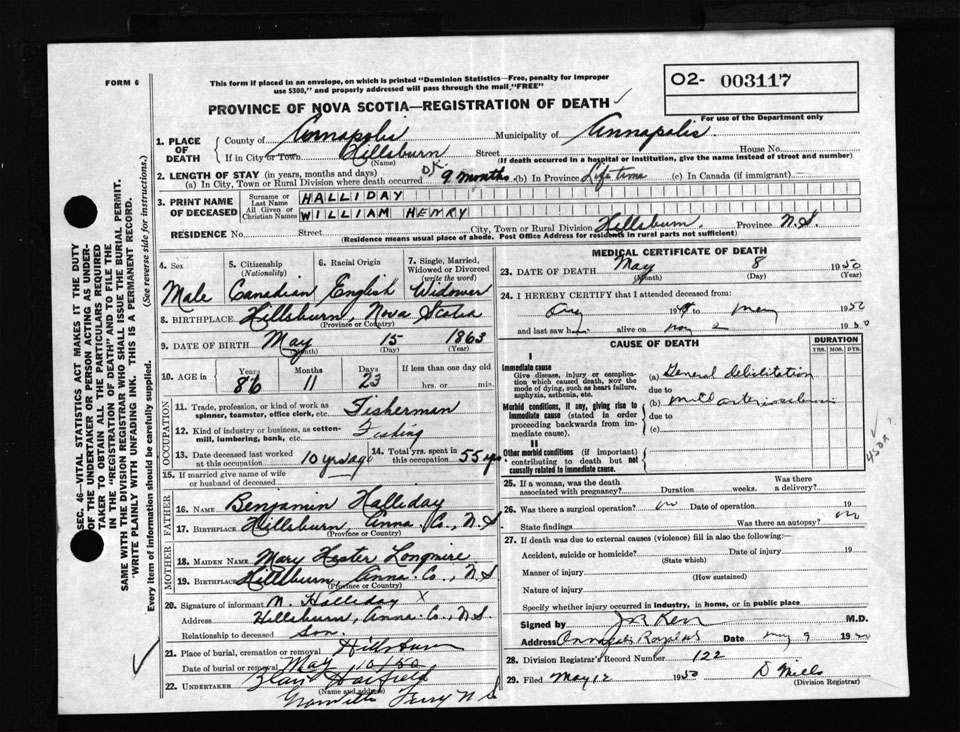 FORM 6
This form if placed in an envelope, on which is printed "Dominion Statistics—Free, penalty for improper
use $300," and properly addressed will pass through the mail "FREE"
O2- 003117
For use of the Department only
PROVINCE OF NOVA SCOTIA—REGISTRATION OF DEATH
1. PLACE OF DEATH
County of Annapolis Municipality of Annapolis.
If in City or Town Hillsburn Street House No.
(Name) (If death occurred in a hospital or institution, give the name instead of street and number)
2. LENGTH OF STAY (in years, months and days)
(a) In City, Town or Rural Division where death occurred D.K. 9 months (b) In Province Life time (c) In Canada (if immigrant)
3. PRINT NAME OF DECEASED
Surname or Last Name HALLIDAY
All Given or Christian Names WILLIAM HENRY
RESIDENCE No. Street City, Town or Rural Division Hillsburn. Province N.S.
(Residence means usual place of abode. Post Office Address for residents in rural parts not sufficient)
4. Sex Male
5. Citizenship (Nationality) Canadian
6. Racial Origin English
7. Single, Married, Widowed or Divorced (write the word) Widower
8. BIRTHPLACE Hillsburn, Nova Scotia
(Province or Country)
9. DATE OF BIRTH May 15 1863
(Month) (Day) (Year)
10. AGE in Years 86 Months 11 Days 23 If less than one day old hrs. or min.
OCCUPATION
11. Trade, profession, or kind of work as spinner, teamster, office clerk, etc. Fisherman
12. Kind of industry or business, as cotton-mill, lumbering, bank, etc. Fishing
13. Date deceased last worked at this occupation 10 yrs ago
14. Total yrs. spent in this occupation 55 yrs
15. If married give name of wife or husband of deceased
FATHER
16. Name Benjamin Halliday
17. Birthplace Hillsburn, Anna. Co., N.S
MOTHER
18. Maiden Name Mary Hester Longmire
19. Birthplace Hillsburn, Anna. Co., N.S
(Province or Country)
20. Signature of informant N. Halliday X
Address Hillsburn, Anna. Co., N.S.
Relationship to deceased Son.
21. Place of burial, cremation or removal Hillsburn
Date of burial or removal May 10/50
22. UNDERTAKER Hatfield
(Name and address)
Granville Ferry N S
MEDICAL CERTIFICATE OF DEATH
23. DATE OF DEATH May 8 1950
(Month) (Day) (Year)
24. I HEREBY CERTIFY that I attended deceased from:
19 to May 1950
and last saw h alive on 2 1950
CAUSE OF DEATH
DURATION
YRS. MOS. DYS.
I
Immediate cause
Give disease, injury or complication which caused death, NOT the mode of dying, such as heart failure, asphyxia, asthenia, etc.
(a) General debilitation
due to
Morbid conditions, if any, giving rise to immediate cause (stated in order proceeding backwards from immediate cause).
(b)
due to
(c)
II
Other morbid conditions (if important) contributing to death but not causally related to immediate cause.
25. If a woman, was the death associated with pregnancy? Duration weeks. Was there a delivery?
26. Was there a surgical operation? no Date of operation 19
State findings Was there an autopsy? no
27. If death was due to external causes (violence) fill in also the following:
Accident, suicide or homicide? Date of injury 19
(State which)
Manner of injury
(How sustained)
Nature of injury
Specify whether injury occurred in industry, in home, or in public place
Signed by Kerr M.D.
Address Annapolis Royal N.S Date May 9 1950
28. Division Registrar's Record Number 122
29. Filed May 12 1950 D Mills
(Division Registrar)
SEC. 46—VITAL STATISTICS ACT MAKES IT THE DUTY
OF THE UNDERTAKER OR PERSON ACTING AS UNDER-
TAKER TO OBTAIN ALL THE PARTICULARS REQUIRED
IN THE "REGISTRATION OF DEATH" AND TO FILE THE
SAME WITH THE DIVISION REGISTRAR WHO SHALL ISSUE THE BURIAL PERMIT.
WRITE PLAINLY WITH UNFADING INK. THIS IS A PERMANENT RECORD.
Every item of information should be carefully supplied. (See reverse side for instructions.)